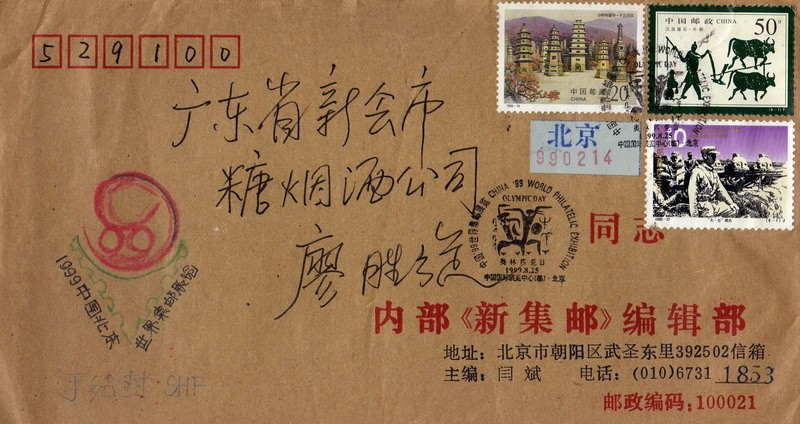 529100
广东省新会市
糖烟酒公司
廖胜
同志
中国邮政
CHINA
20分
中国邮政 CHINA
50分
北京
990214
中国'99世界集邮展览 CHINA '99 WORLD PHILATELIC EXHIBITION
OLYMPIC DAY
奥林匹克日
1999.8.25
中国国际展览中心(临)·北京
1999中国北京
世界集邮展览
手绘封
内部《新集邮》编辑部
地址:北京市朝阳区武圣东里392502信箱
主编:闫 斌 电话:(010)6731 1853
邮政编码:100021